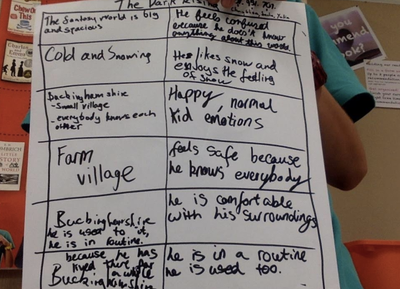 The Dark Rising
The fantasy world is big
and spacious
He feels confused
because he doesn't know
everything about this world.
Cold and Snowing
He likes snow and
enjoys the feeling
of snow
Buckinghamshire
- Small village
- everybody knows each
other
Happy, normal
Kid emotions
Farm
village
feels safe because
he knows everybody
Buckinghamshire
he is used to it,
he is in routine.
he is comfortable
with his surroundings
because he has
lived there for
a while
Buckinghamshire
he is in a routine
he is used too.